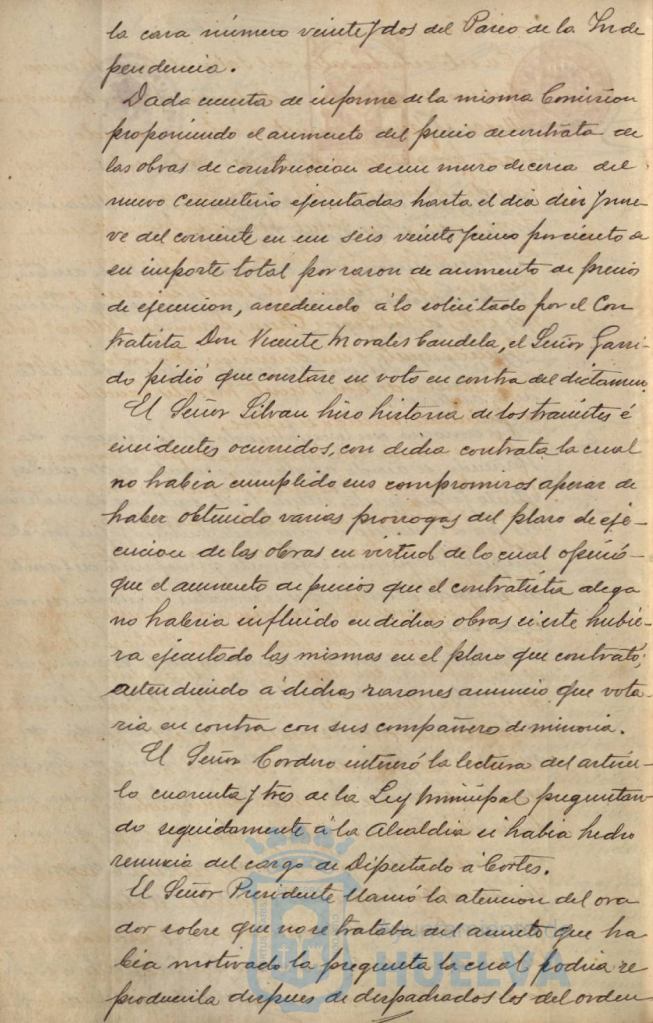 la casa número veinte y dos del Paseo de la Inde
pendencia.
Dada cuenta de informe de la misma Comision
proponiendo el aumento del precio de contrata de
las obras de construccion de un muro de cerca del
nuevo cementerio ejecutadas hasta el dia diez y nue-
ve del corriente en un seis veinte y cinco por ciento a
su importe total por razon de aumento de precios
de ejecucion, accediendo á lo solicitado por el Con
tratista Don Vicente Morales Candela, el Señor Garri-
do pidió que constase su voto en contra del dictamen.
El Señor Silvan hizo historia de los tramites é
incidentes ocurridos, con dicha contrata la cual
no habia cumplido sus compromisos apesar de
haber obtenido varias prorrogas del plazo de eje-
cucion de las obras en virtud de lo cual opinó
que el aumento de precios que el contratista alega
no habria influido en dichas obras si este hubie-
ra ejecutado las mismas en el plazo que contrató;
atendiendo á dichas razones anuncio que vota-
ria en contra con sus compañeros de minoria.
El Señor Cordero interesó la lectura del articu-
lo cuarenta y tres de la Ley Municipal preguntan-
do seguidamente á la Alcaldia si habia hecho
renuncia del cargo de Diputado á Cortes.
El Señor Presidente llamó la atencion del ora
dor sobre que no se trataba del asunto que ha
bia motivado la pregunta la cual podria re
producirla despues de despachados los del orden
HUELVA